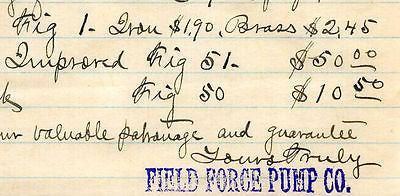 Fig 1- Iron $1.90, Brass $2.45
Improved Fig 51- $50 00
Fig 50 $10 50
valuable patronage and guarantee
Yours Truly
FIELD FORCE PUMP CO.